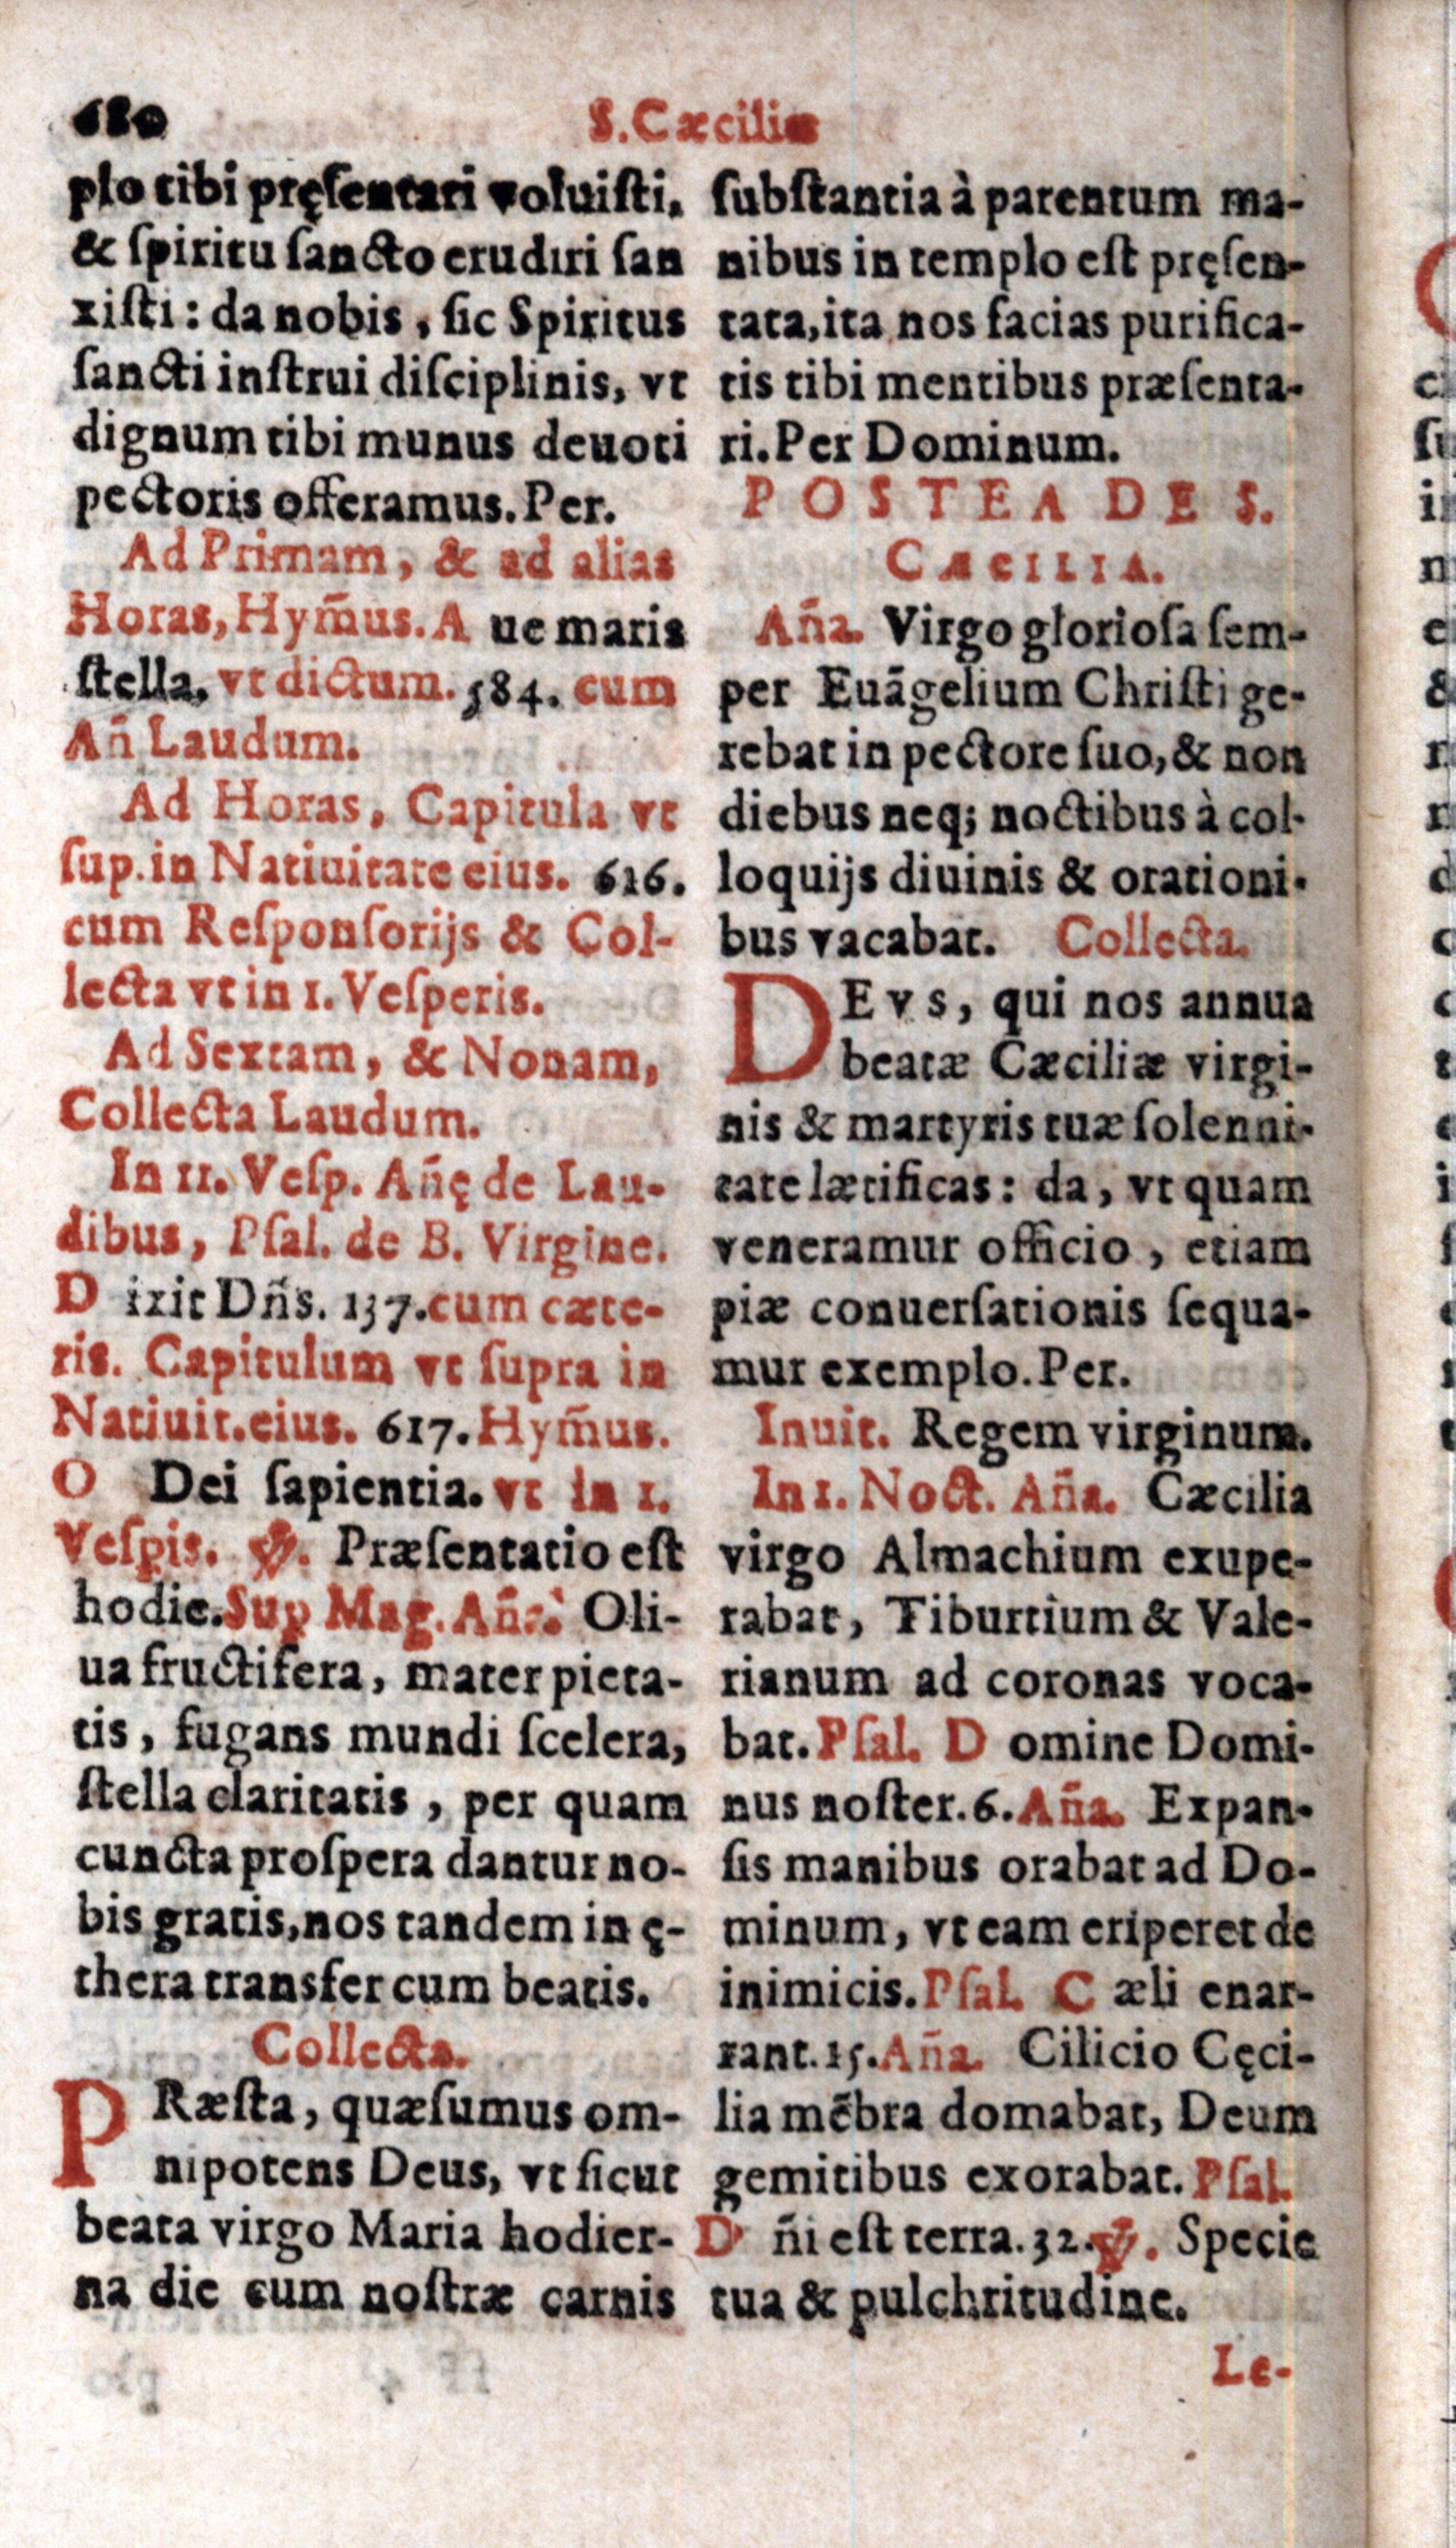 680
S. Cæciliæ
plo tibi pręſentari voluiſti,
& ſpiritu ſancto erudiri ſan
xiſti: da nobis, ſic Spiritus
ſancti inſtrui diſciplinis, vt
dignum tibi munus deuoti
pectoris offeramus. Per.
Ad Primam, & ad alias
Horas, Hym̃us. A ue maris
ſtella, vt dictum. 584. cum
Añ Laudum.
Ad Horas, Capitula vt
ſup. in Natiuitate eius. 616.
cum Reſponſorijs & Col-
lecta vt in 1. Veſperis.
Ad Sextam, & Nonam,
Collecta Laudum.
In 11. Veſp. Añę de Lau-
dibus, Pſal. de B. Virgine.
D ixit Dñs. 137. cum cæte-
ris. Capitulum vt ſupra in
Natiuit. eius. 617. Hym̃us.
O Dei ſapientia. vt in 1.
Veſpis. ℣. Præſentatio eſt
hodie. Sup Mag. Aña. Oli-
ua fructifera, mater pieta-
tis, fugans mundi ſcelera,
ſtella claritatis, per quam
cuncta proſpera dantur no-
bis gratis, nos tandem in ę-
thera transfer cum beatis.
Collecta.
PRæſta, quæſumus om-
nipotens Deus, vt ſicut
beata virgo Maria hodier-
na die cum noſtræ carnis
ſubſtantia à parentum ma-
nibus in templo eſt pręſen-
tata, ita nos facias purifica-
tis tibi mentibus præſenta-
ri. Per Dominum.
POSTEA DE S.
CÆCILIA.
Aña. Virgo glorioſa ſem-
per Euāgelium Chriſti ge-
rebat in pectore ſuo, & non
diebus neq; noctibus à col-
loquijs diuinis & orationi-
bus vacabat. Collecta.
DEvs, qui nos annua
beatæ Cæciliæ virgi-
nis & martyris tuæ ſolenni-
tate lætificas: da, vt quam
veneramur officio, etiam
piæ conuerſationis ſequa-
mur exemplo. Per.
Inuit. Regem virginum.
In 1. Noct. Aña. Cæcilia
virgo Almachium exupe-
rabat, Tiburtium & Vale-
rianum ad coronas voca-
bat. Pſal. D omine Domi-
nus noſter. 6. Aña. Expan-
ſis manibus orabat ad Do-
minum, vt eam eriperet de
inimicis. Pſal. C æli enar-
rant. 15. Aña. Cilicio Cęci-
lia mẽbra domabat, Deum
gemitibus exorabat. Pſal.
D ñi eſt terra. 32. ℣. Specie
tua & pulchritudine.
Le-